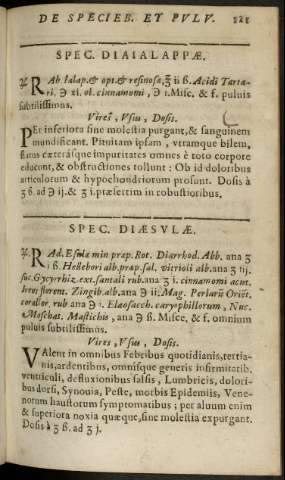 DE SPECIEB. ET PVLV.
SPEC. DIAIALAPPÆ.
℞ Ab. Ialap. & opt. & resinosæ, ʒ ii ß. Acidi Tarta-
ri. ℈ xi. ol. cinnamomi, ℈ i. Misc. & f. puluis
subtilissimus.
Vires, Vsus, Dosis.
PEr inferiora sine molestia purgant, & sanguinem
mundificant. Pituitam ipsam, vtramque bilem,
serum cæterásque impuritates omneis è toto corpore
educunt, & obstructiones tollunt: Ob id doloribus
articulorum & hypochondriorum prosunt. Dosis à
ʒ ß. ad ℈ ij. & ʒ i. præsertim in robustioribus.
SPEC. DIÆSVLÆ.
℞ Ad. Esulæ min præp. Rot. Diarrhod. Abb. ana ʒ
i ß. Hellebori alb. præp. sal. vitrioli alb. ana ʒ iij.
suc. Gycyrrhiz. ext. santali rub. ana ʒ i. cinnamomi acut.
Ireos florent. Zingib. alb. ana ℈ ii. Mag. Perlarū Oriēt.
corallor. rub. ana ℈ i. Elaosacch. caryophillorum, Nuc.
Moschat. Mastichis, ana ℈ ß. Misce, & f. omnium
puluis subtilissimus.
Vires, Vsus, Dosis.
VAlent in omnibus Febribus quotidianis, tertia-
nis, ardentibus, omnisque generis infirmitatib.
ventriculi, defluxionibus salsis, Lumbricis, dolori-
bus dorsi, Synouia, Peste, morbis Epidemiis, Vene-
norum haustorum symptomatibus; per aluum enim
& superiora noxia quæque, sine molestia expurgant.
Dosis à ʒ ß. ad ʒ j.